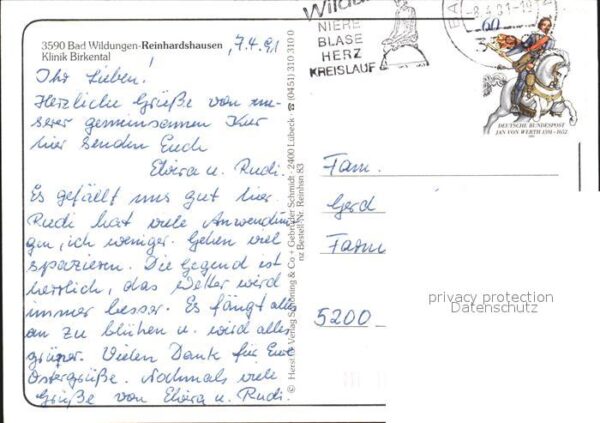 3590 Bad Wildungen-Reinhardshausen
Klinik Birkental
7.4.91
Ihr Lieben!
Herzliche Grüße von un-
serer gemeinsamen Kur
hier senden Euch
Elvira u. Rudi.
Es gefällt uns gut hier.
Rudi hat viele Anwendun-
gen, ich weniger. Gehen viel
spazieren. Die Gegend ist
herrlich, das Wetter wird
immer besser. Es fängt alles
an zu blühen u. wird alles
grüner. Vielen Dank für Eure
Ostergrüße. Nochmals viele
Grüße von Elvira u. Rudi.
© Herst. u. Verlag Schöning & Co + Gebrüder Schmidt · 2400 Lübeck · ☎ (0451) 310 310 0
nz Bestell-Nr. Reinhsn 83
NIERE
BLASE
HERZ
KREISLAUF
60
DEUTSCHE BUNDESPOST
JAN VON WERTH 1591 - 1652
Fam.
Gerd
Farm
5200
privacy protection
Datenschutz